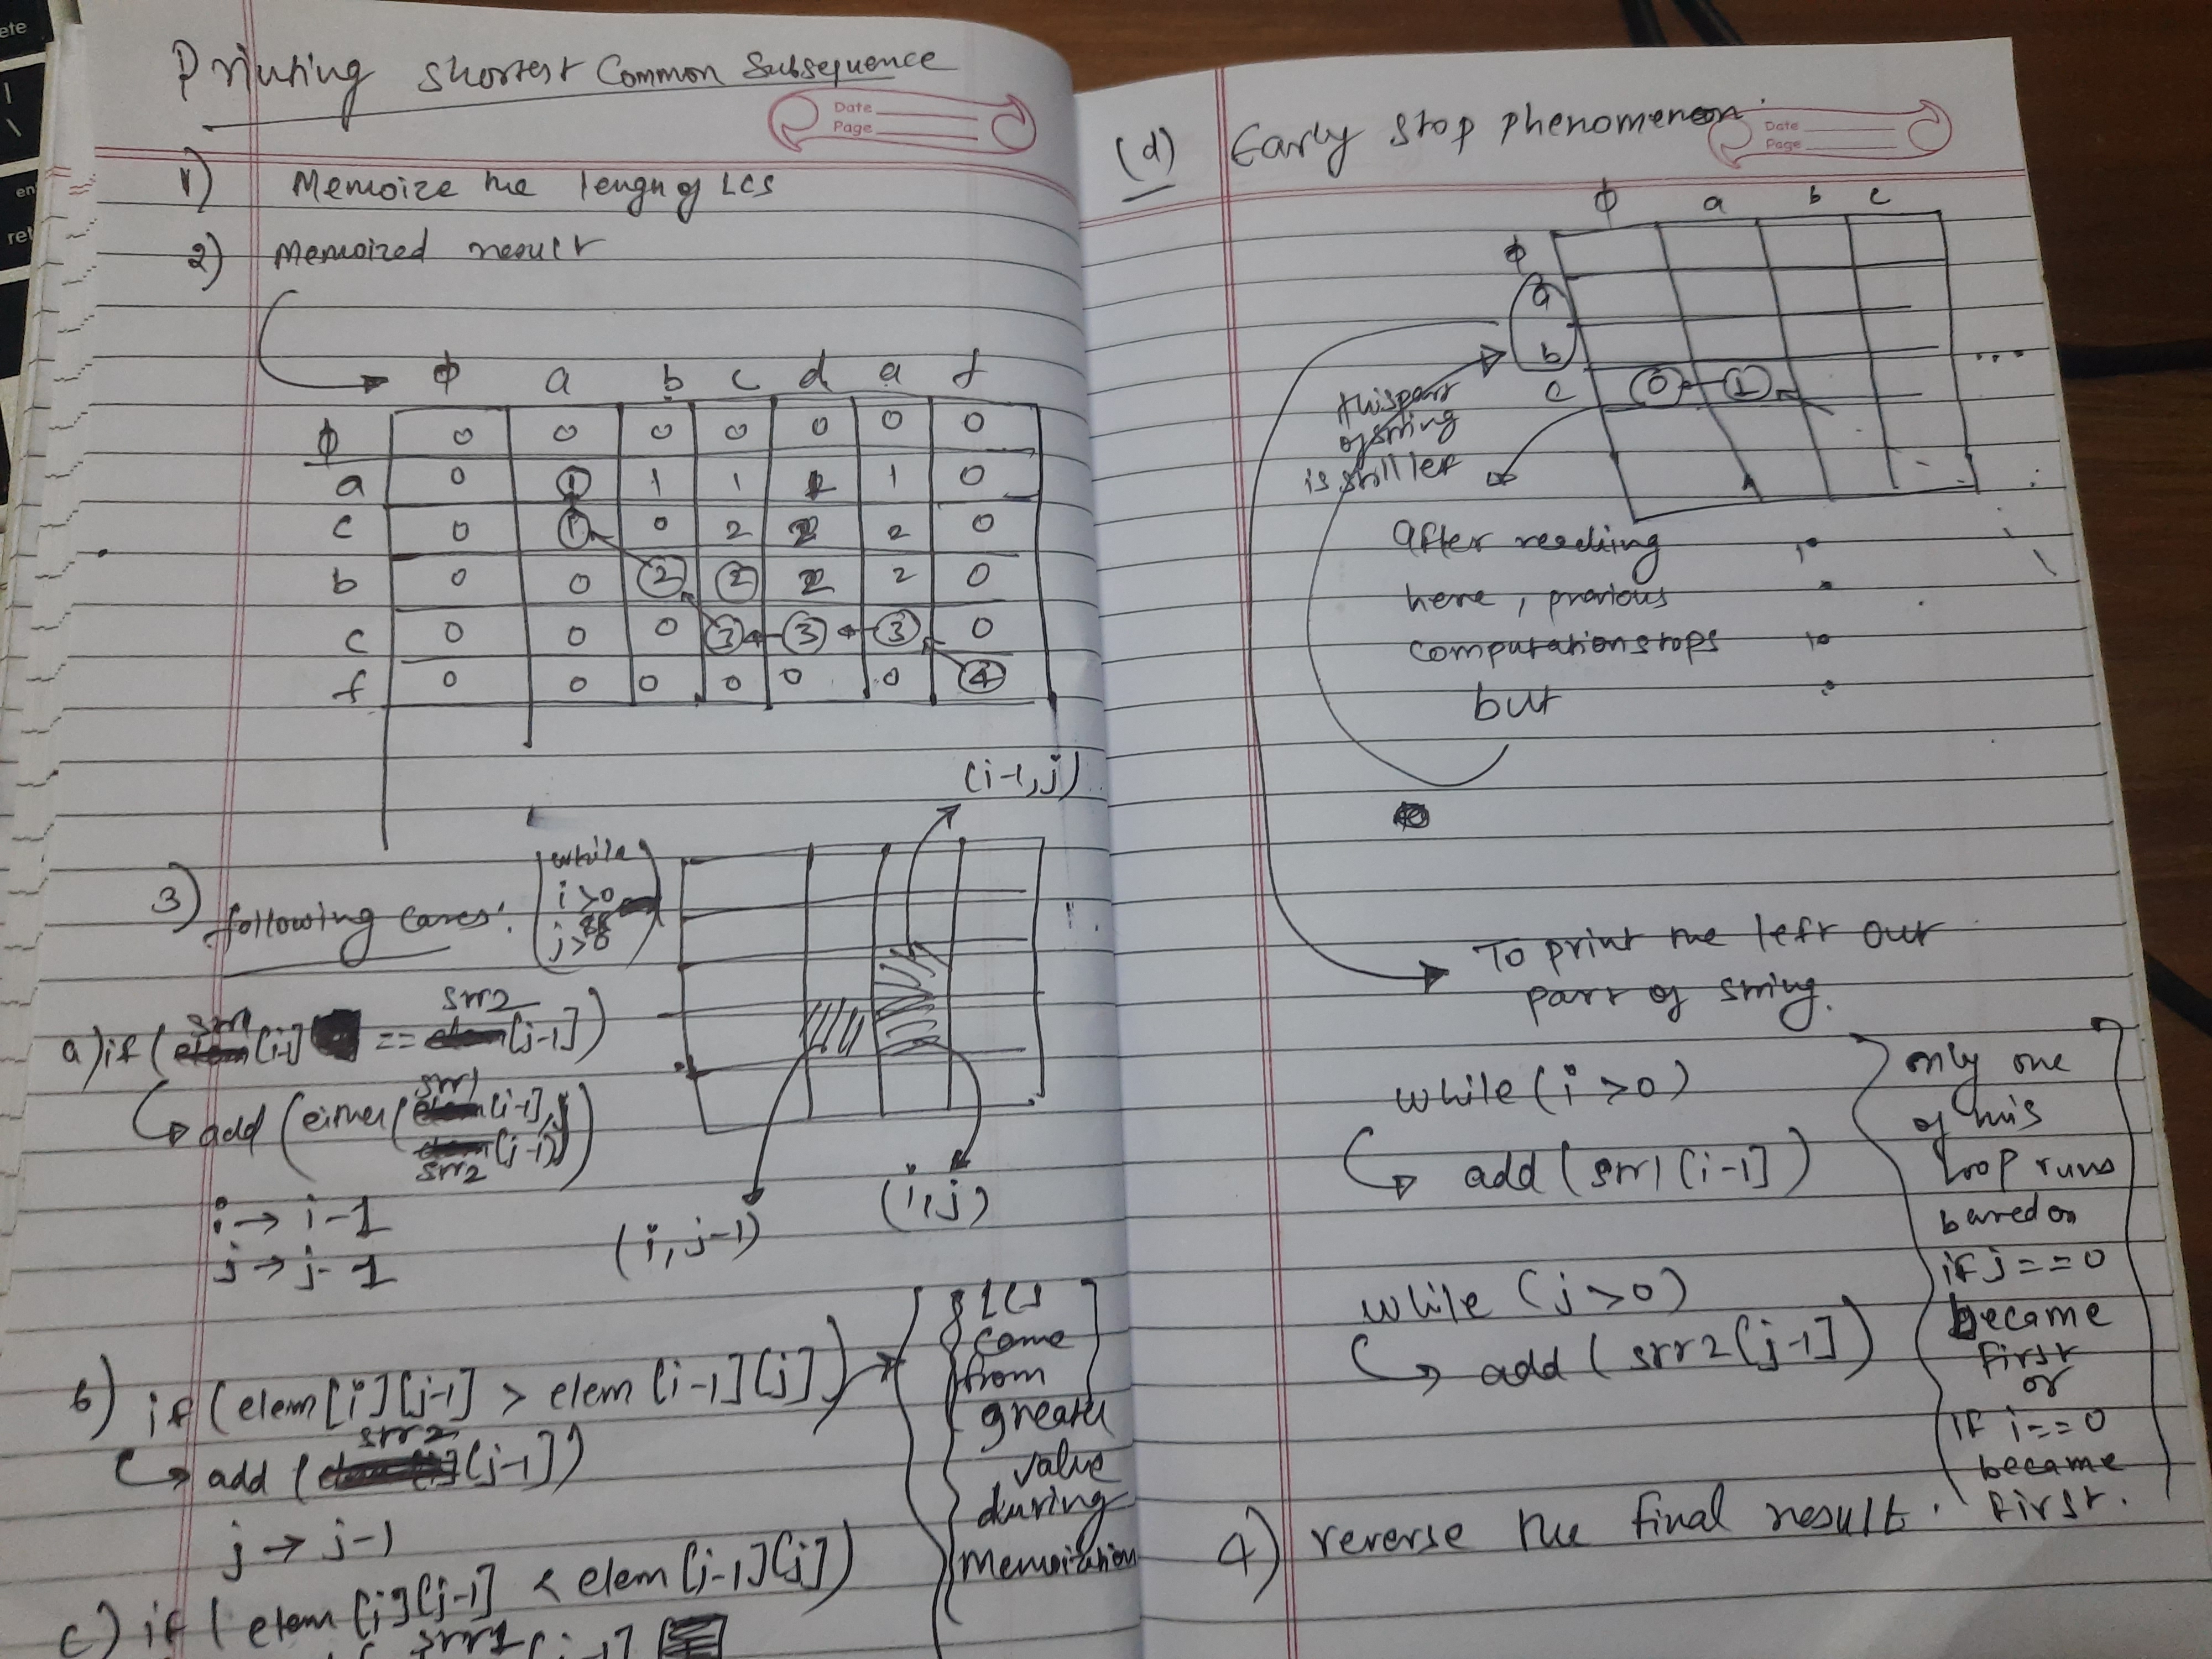 Printing shortest Common Subsequence
Date
Page
1) Memoize the length of LCS
2) Memoized result
ϕ a b c d a f
ϕ 0 0 0 0 0 0 0
a 0 1 1 1 1 1 0
c 0 1 0 2 2 2 0
b 0 0 2 2 2 2 0
c 0 0 0 3 3 3 0
f 0 0 0 0 0 0 4
(i-1,j)
3) following cases:
while
i>0
&&
j>0
a) if (str1[i-1] == str2[j-1])
add (either (str1[i-1],
str2[j-1]))
i → i-1
j → j-1
(i, j-1)
(i,j)
b) if (elem[i][j-1] > elem[i-1][j])
add (str2[j-1])
j → j-1
LCS
come
from
greater
value
during
Memoization
c) if (elem[i][j-1] < elem[i-1][j])
str1[i-1]
(d) Early stop phenomenon
Date
Page
ϕ a b c
ϕ
a
b
c 0 1
...
this part
of string
is still left
After reaching
here, previous
computation stops
but
To print the left out
part of string.
while (i>0)
add (str1[i-1])
while (j>0)
add (str2[j-1])
only one
of this
loop runs
based on
if j==0
became
first
or
if i==0
became
first.
4) reverse the final result.